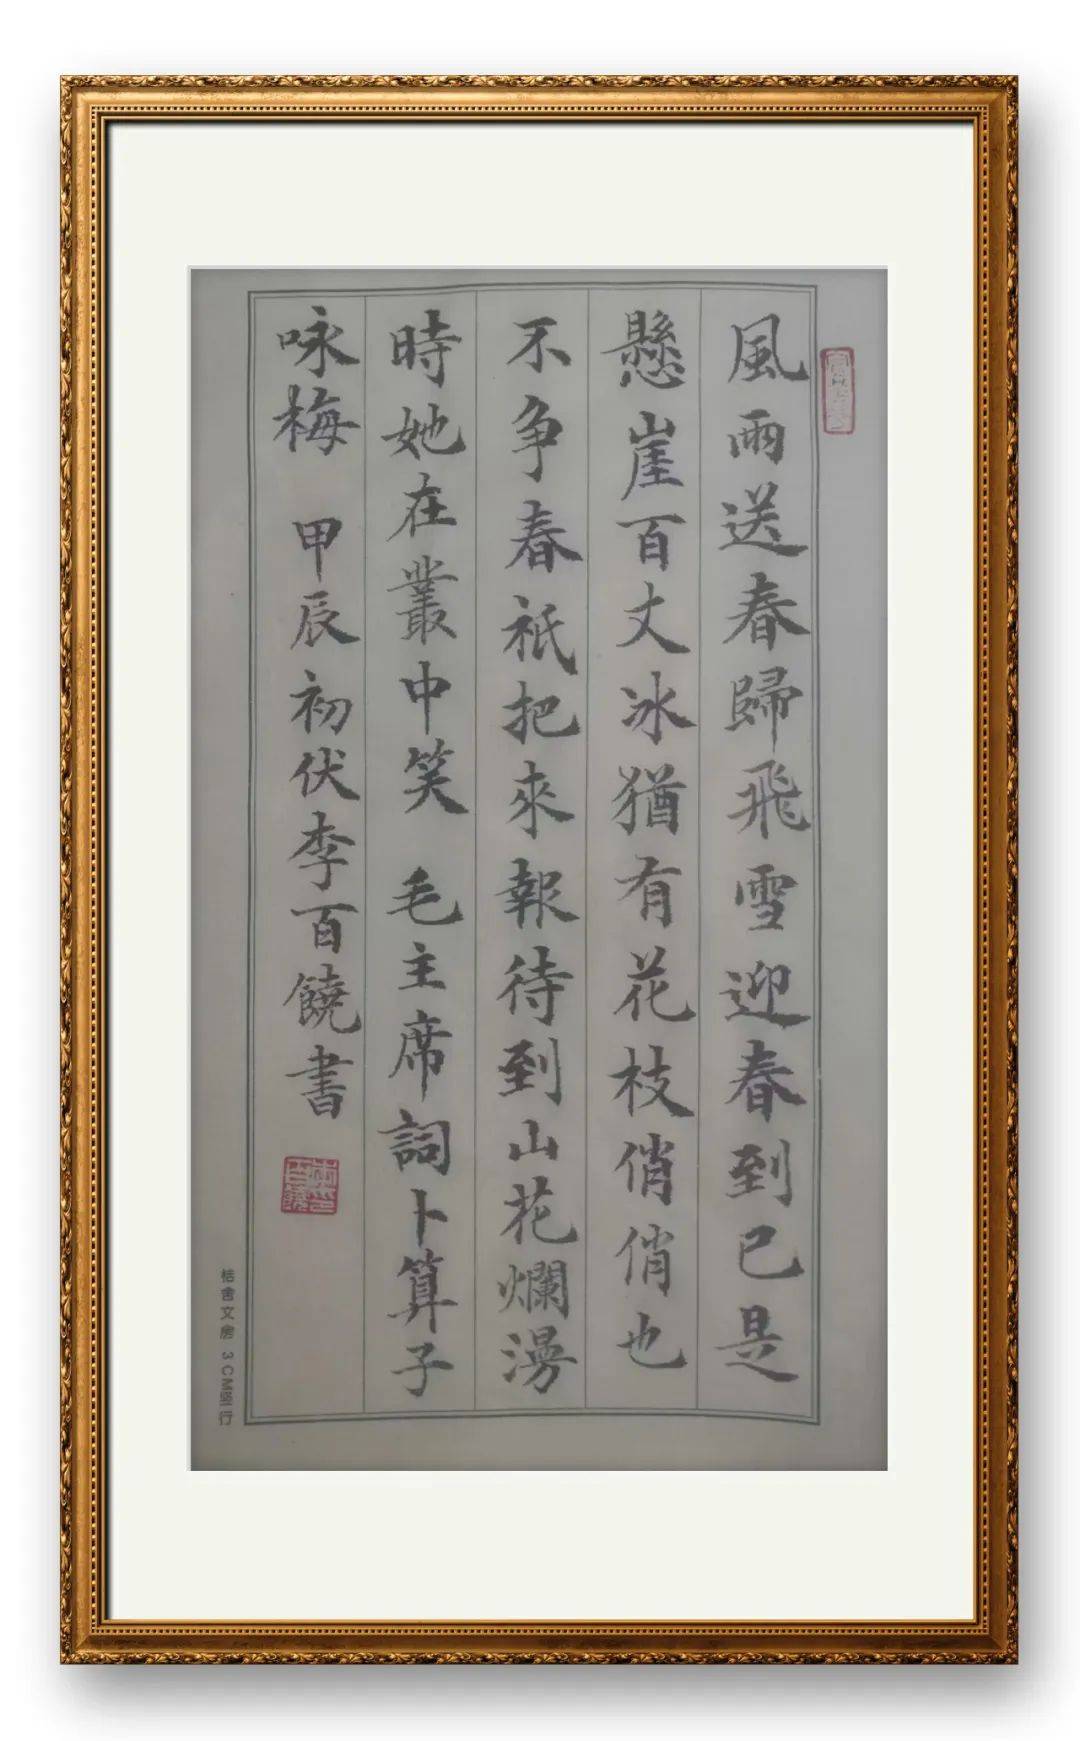 風雨送春歸飛雪迎春到已是
懸崖百丈冰猶有花枝俏俏也
不争春祇把來報待到山花爛漫
時她在叢中笑 毛主席詞卜算子
咏梅 甲辰初伏李百饒書
桔舍文房 3CM竖行